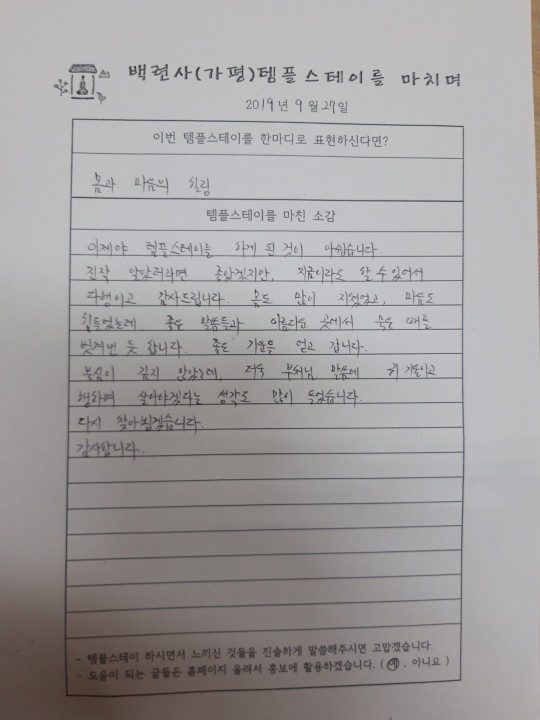 백련사(가평)템플스테이를 마치며
2019년 9월 27일
이번 템플스테이를 한마디로 표현하신다면?
몸과 마음의 힐링
템플스테이를 마친 소감
이제야 템플스테이를 하게 된 것이 아쉽습니다.
진작 알았더라면 좋았겠지만, 지금이라도 할 수 있어서
다행이고 감사드립니다. 몸도 많이 지쳤었고, 마음도
힘들었는데. 좋은 말씀들과 아름다운 곳에서 묵은 때를
벗겨낸 듯 합니다. 좋은 기운을 얻고 갑니다.
불심이 깊지 않았는데, 더욱 부처님 말씀에 귀 기울이고
행하며 살아야겠다는 생각도 많이 들었습니다.
다시 찾아뵙겠습니다.
감사합니다.
- 템플스테이 하시면서 느끼신 것들을 진솔하게 말씀해주시면 고맙겠습니다.
- 도움이 되는 글들은 홈페이지 올려서 홍보에 활용하겠습니다. ( 예. 아니요 )